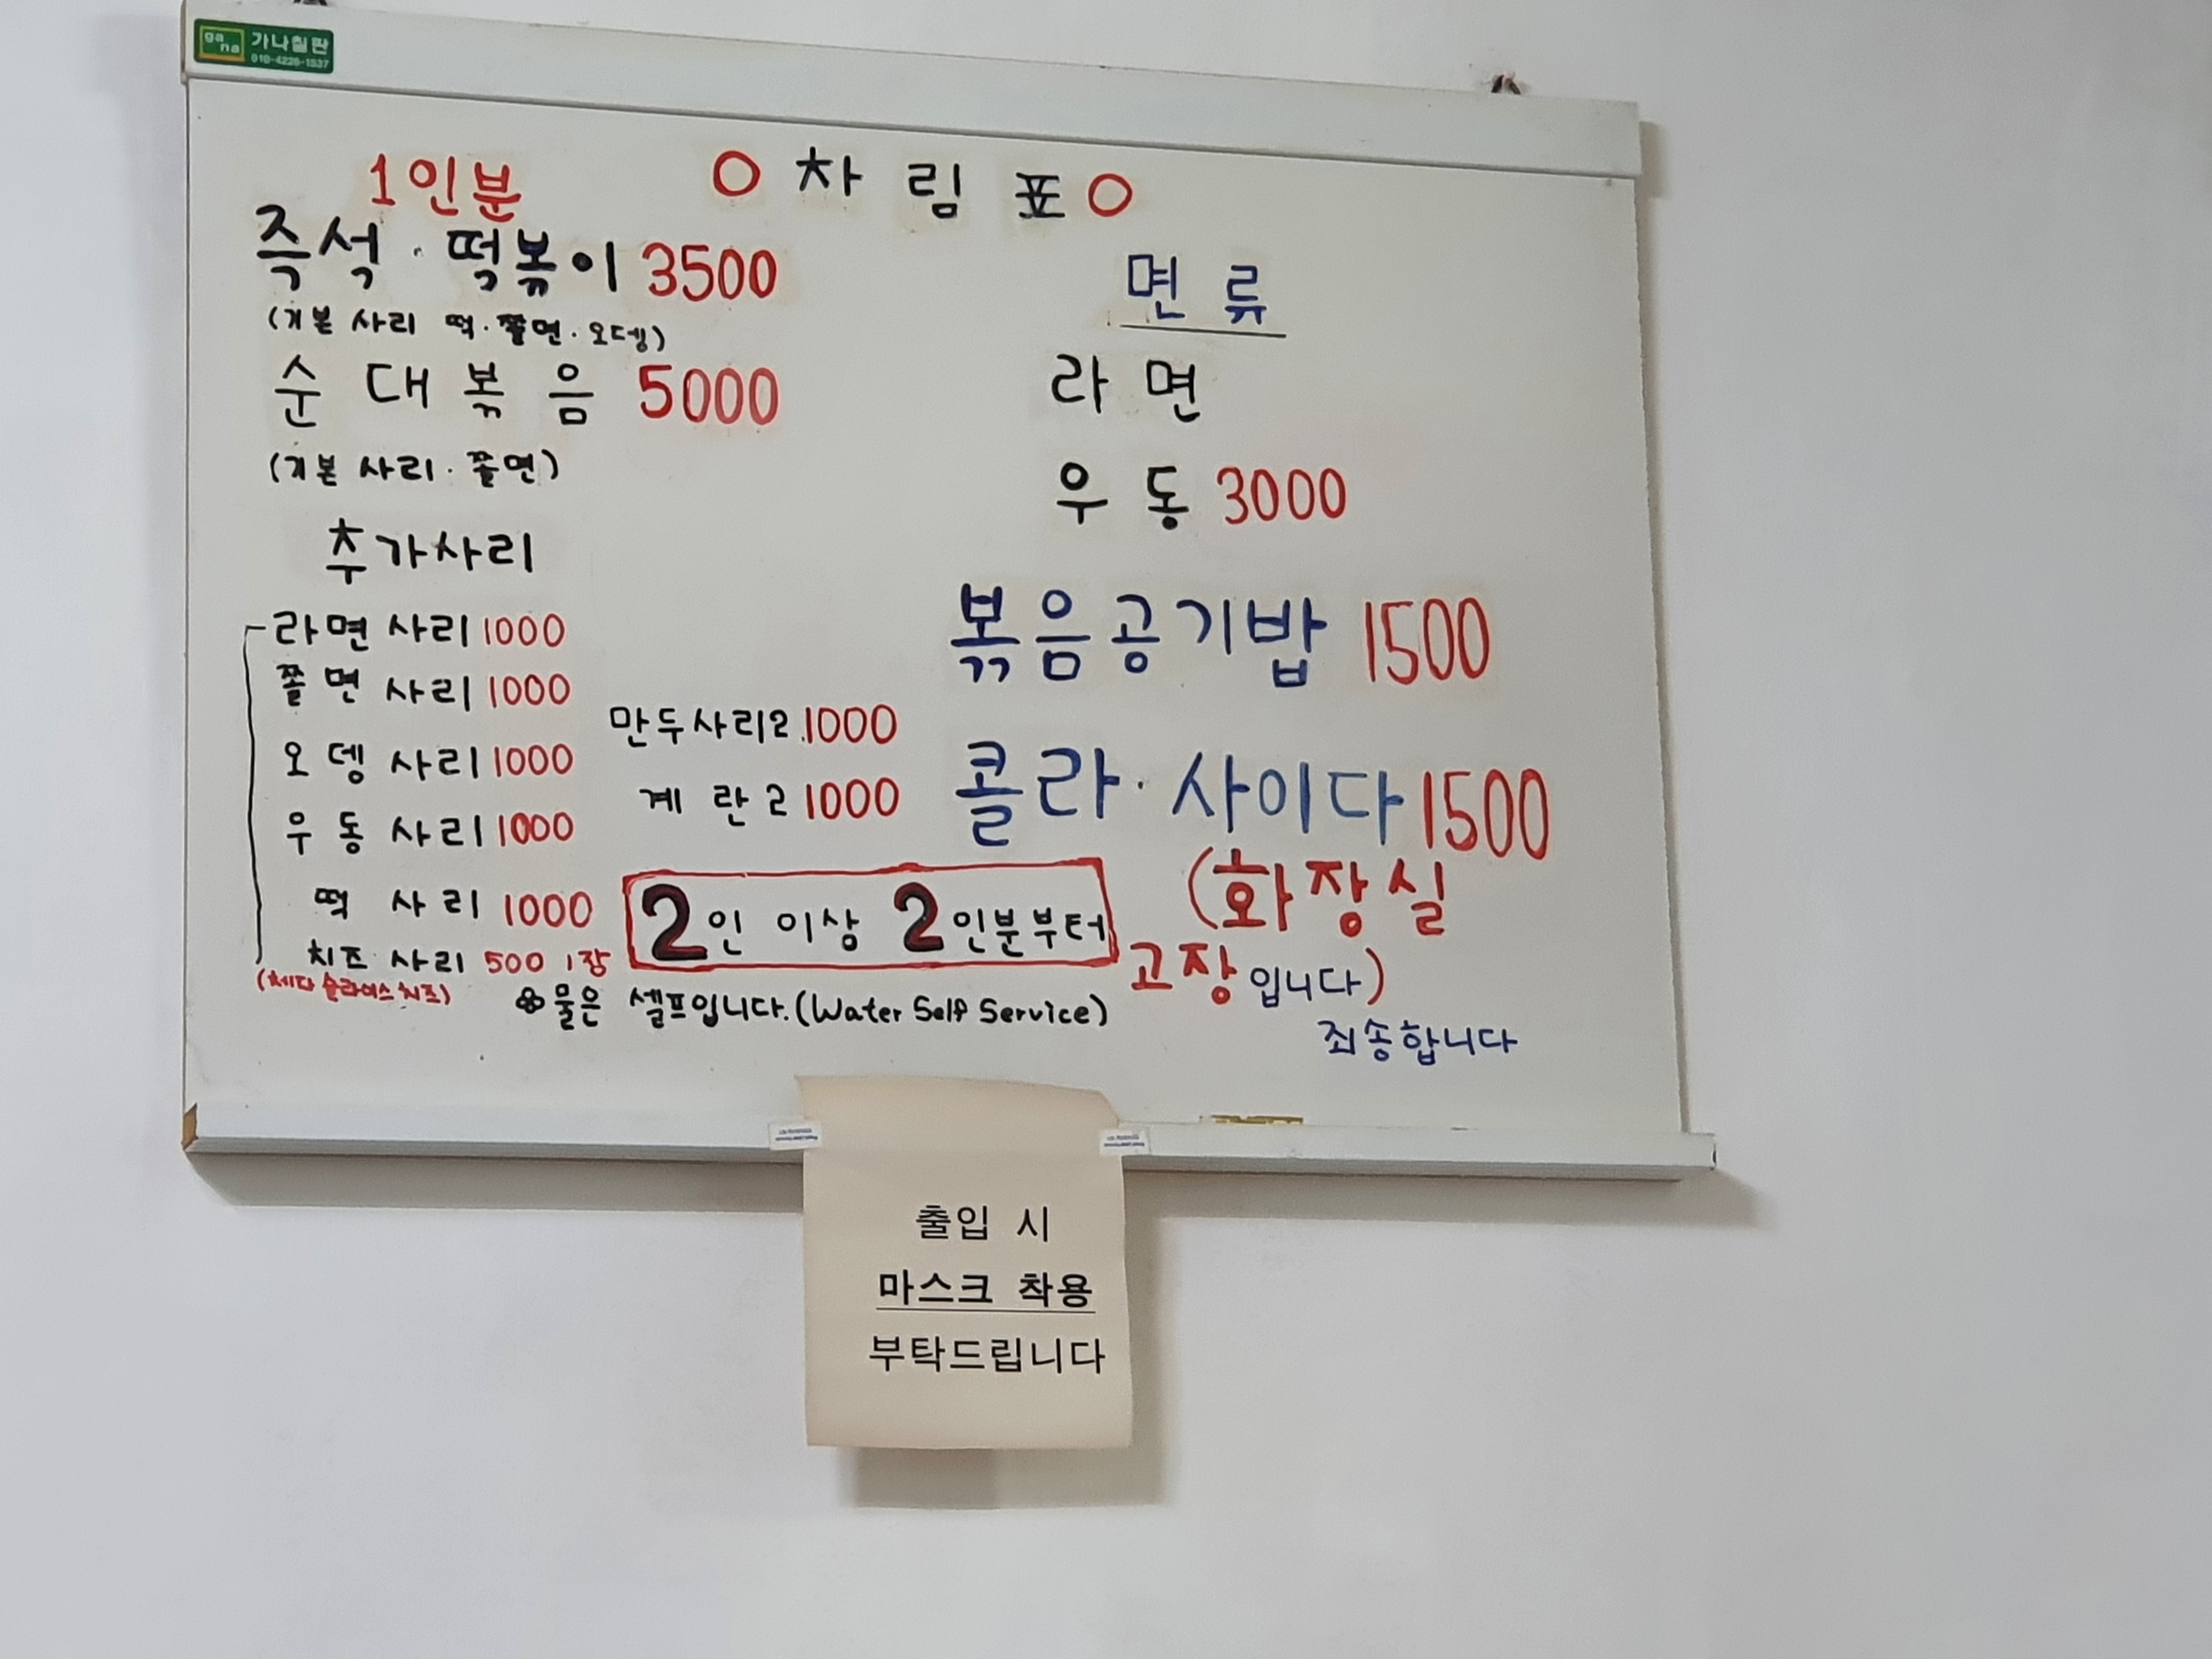 ga na 가나칠판
010-4226-1537
○ 차 림 표 ○
1인분
즉석·떡볶이 3500
(기본 사리 떡·쫄면·오뎅)
순 대 볶 음 5000
(기본 사리·쫄면)
추가사리
라면 사리 1000
쫄면 사리 1000
오뎅 사리 1000
우동 사리 1000
떡 사리 1000
치즈 사리 500 1장
(체다 슬라이스 치즈)
만두사리2 1000
계 란 2 1000
2인 이상 2인분부터
물은 셀프입니다.(Water Self Service)
면 류
라 면
우 동 3000
볶음공기밥 1500
콜라·사이다 1500
(화장실
고장입니다)
죄송합니다
출입 시
마스크 착용
부탁드립니다